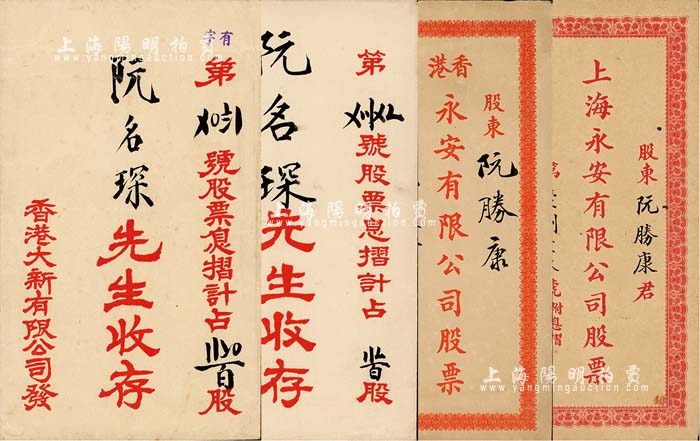 有字
第
號股票息摺計占
股
阮名琛先生收存
香港大新有限公司發
第
號股票息摺計占
股
阮名琛先生收存
股東 阮勝康
香港永安有限公司股票
股東 阮勝康君
號附息摺
上海永安有限公司股票
上海陽明拍賣
www.yangmingauction.com
上海陽明拍賣
www.yangmingauction.com
上海陽明拍賣
www.yangmingauction.com
上海陽明拍賣
www.yangmingauction.com